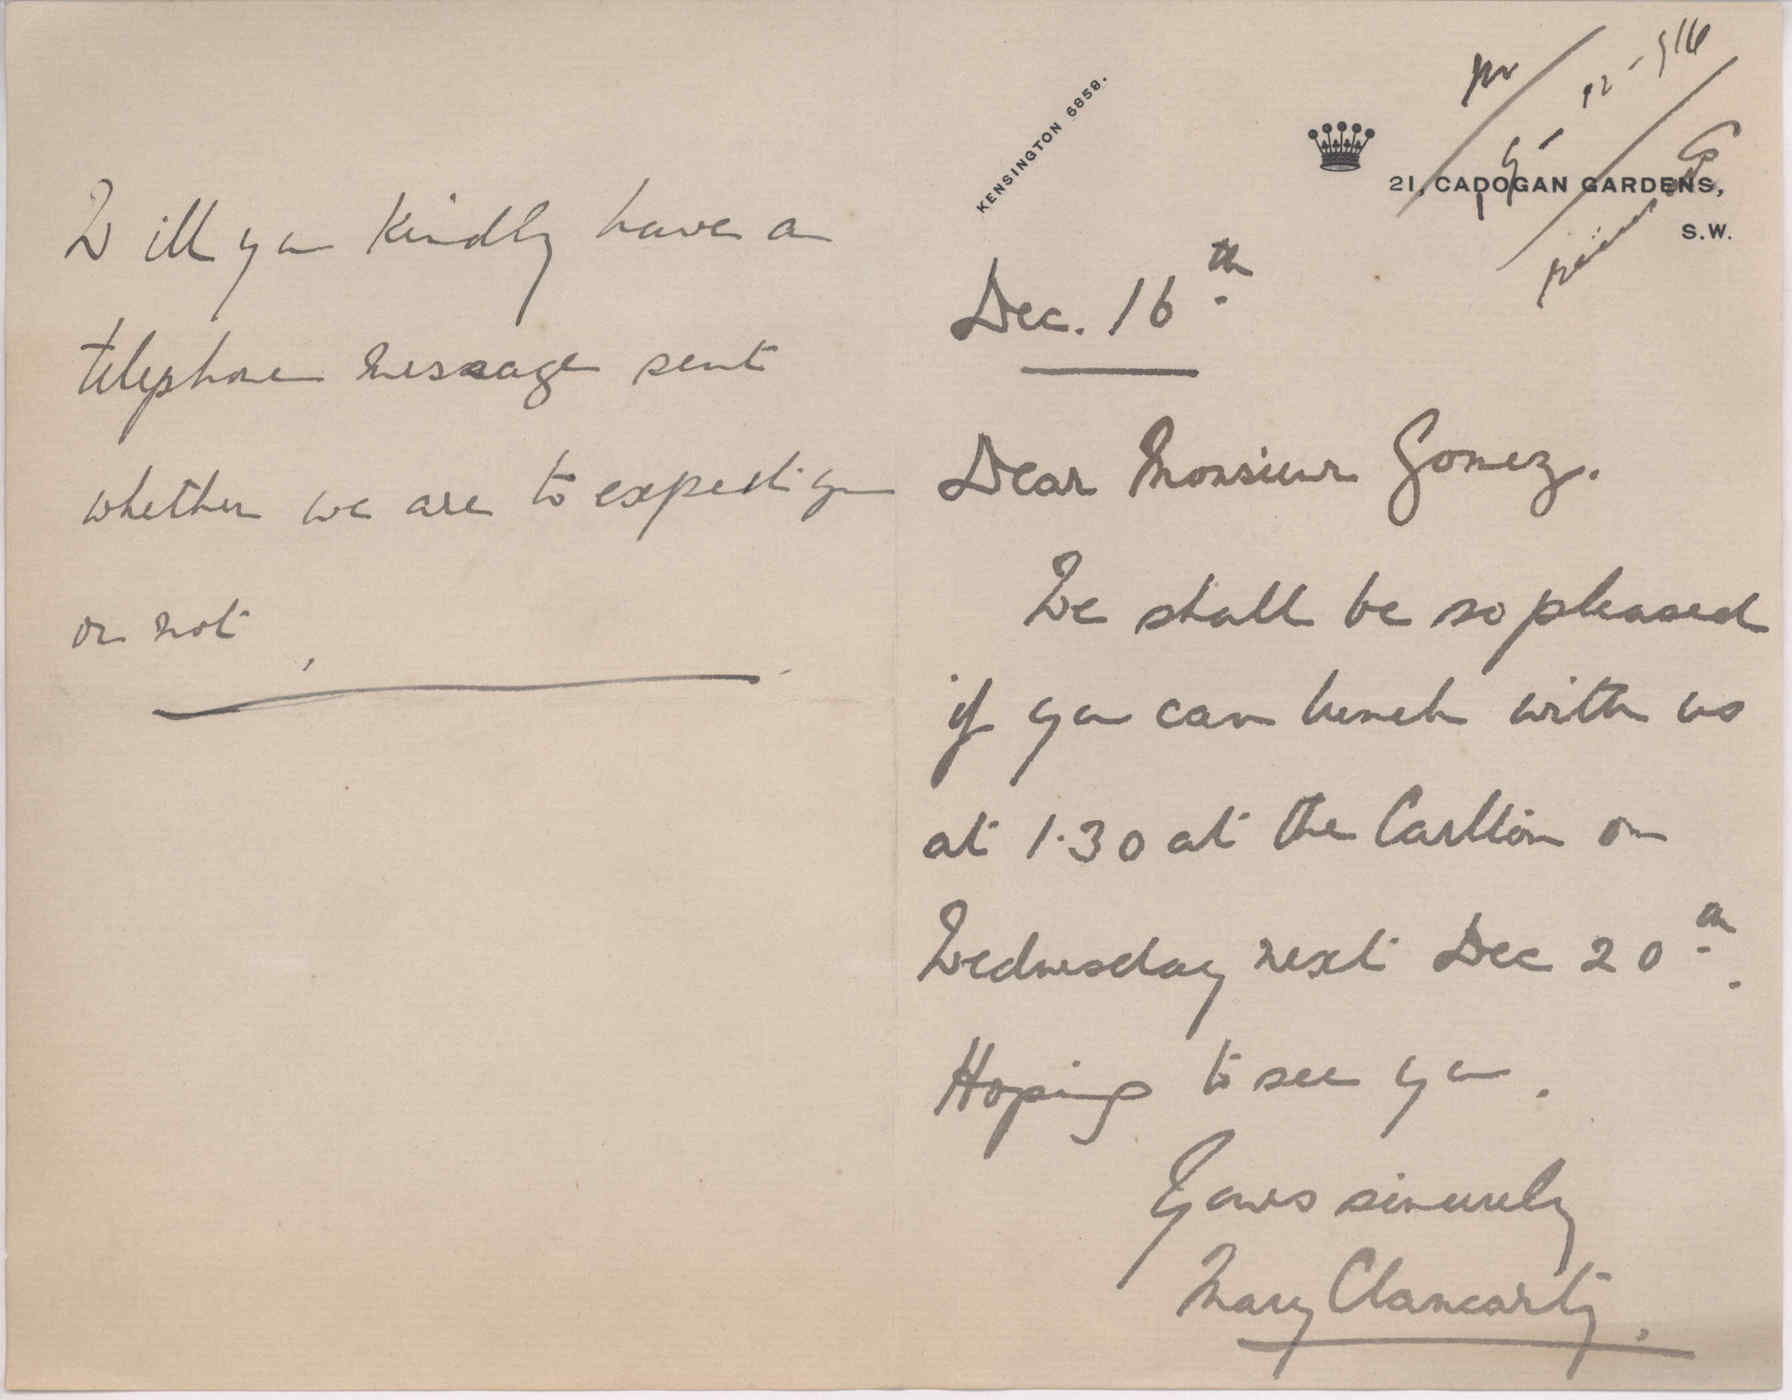 KENSINGTON 6858.
21, CADOGAN GARDENS,
S.W.
Dec. 16th
Dear Monsieur Gomez.
We shall be so pleased
if you can lunch with us
at 1.30 at the Carlton on
Wednesday next Dec 20th.
Hoping to see you.
Yours sincerely
Mary Clancarty.
Will you kindly have a
telephone message sent
whether we are to expect you
or not